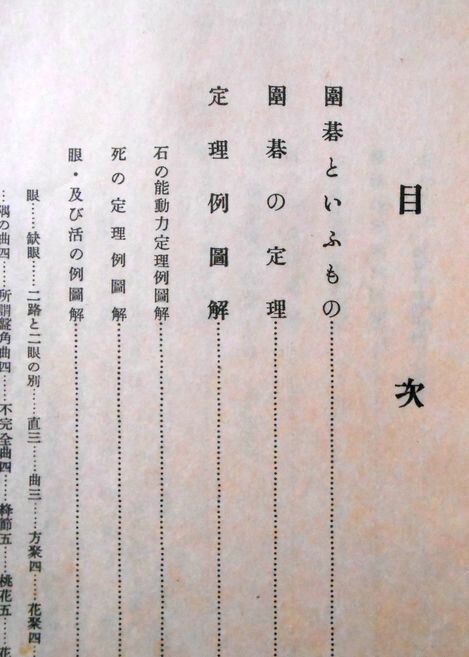 目次
圍碁といふもの……
圍碁の定理……
定理例圖解……
石の能動力定理例圖解……
死の定理例圖解……
眼・及び活の例圖解……
眼……缺眼……二路と二眼の別……直三……曲三……方聚四……花聚四……
…隅の曲四……所謂盤角曲四……不完全曲四……桃花五……花